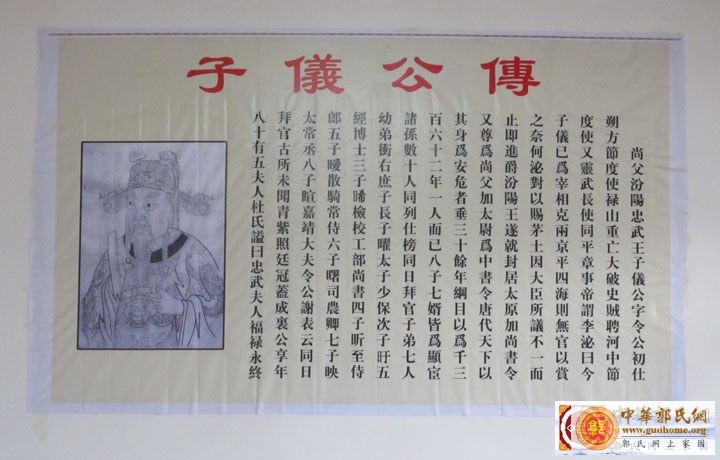 傳公儀子
尚父汾陽忠武王子儀公字令公初仕
朔方節度使禄山重亡大破史贼聘河中節
度使又靈武長使同平章事帝謂李泌曰今
子儀已爲宰相克兩京平四海則無官以賞
之奈何泌對以賜茅土因大臣所議不一而
止即進爵汾陽王遂就封居太原加尚書令
又尊爲尚父加太尉爲中書令唐代天下以
其身爲安危者垂三十餘年綱目以爲千三
百六十二年一人而已八子七婿皆爲顯宦
諸孫數十人同列仕榜同日拜官子弟七人
幼弟衝右庶子長子曜太子少保次子旰五
經博士三子晞檢校工部尚書四子昕至侍
郎五子曖散騎常侍六子曙司農卿七子映
太常丞八子暄嘉靖大夫令公謝表云同日
拜官古所未聞青紫照廷冠蓋成裏公享年
八十有五夫人杜氏謚曰忠武夫人福禄永終
中華郭氏網
www.guohome.org
郭氏网上家园